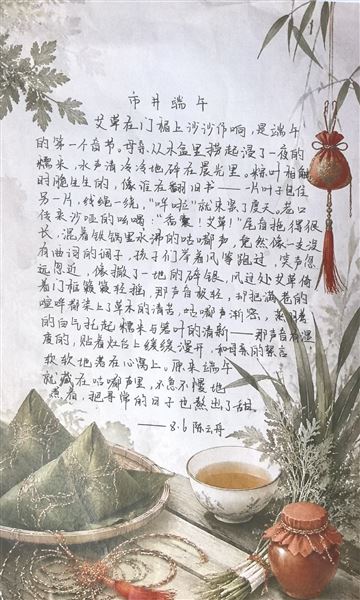 市井端午
艾草在门楣上沙沙作响，是端午
的第一个音节。母亲从木盆里捞起浸了一夜的
糯米，水声清泠泠地碎在晨光里。粽叶相触
时脆生生的，像谁在翻旧书——一片叶子包住
另一片，线绳一绕，“哗啦”就束紧了夏天。巷口
传来沙哑的吆喝：“香囊！艾草！”尾音拖得很
长，混着铁锅里水沸的咕嘟声，竟然像一支没
有曲词的调子，孩子们举着风筝跑过，笑声忽
远忽近，像撒了一地的碎银，风过处艾草倚
着门框簌簌轻摇，那声音极轻，却把满巷的
喧哗都染上了草木的清苦。咕嘟声渐密，蒸腾着
的白气托起糯米与箬叶的清新——那声音有湿
度的，贴着灶台上缓缓漫开，和母亲的絮言
软软地落在心窝上。原来端午
就藏在咕嘟声里，不急不慢地
熬着，把寻常的日子也熬出了甜。
——8.6 陈云舟